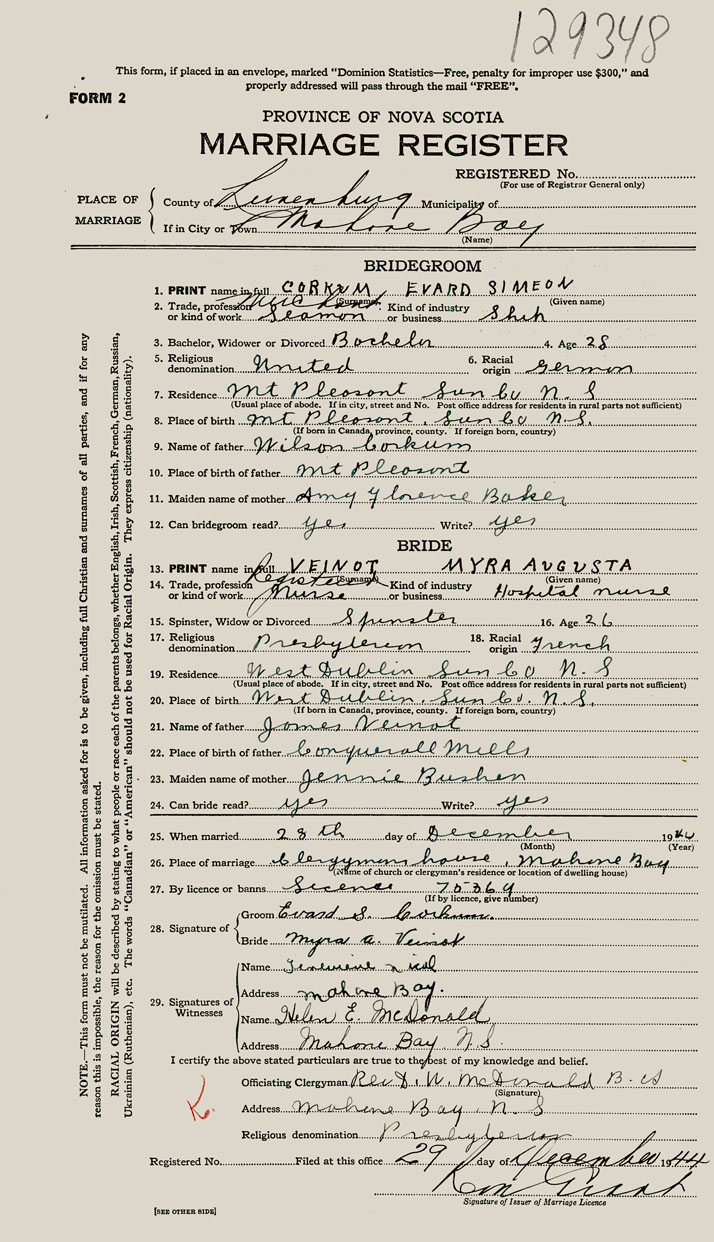 129348
This form, if placed in an envelope, marked "Dominion Statistics—Free, penalty for improper use $300," and
properly addressed will pass through the mail "FREE".
FORM 2
PROVINCE OF NOVA SCOTIA
MARRIAGE REGISTER
REGISTERED No.
(For use of Registrar General only)
PLACE OF MARRIAGE
County of Lunenburg Municipality of
If in City or Town Mahone Bay
(Name)
BRIDEGROOM
1. PRINT name in full CORKUM EVARD SIMEON
(Surname) (Given name)
2. Trade, profession or kind of work Merchant Seaman Kind of industry or business Ship
3. Bachelor, Widower or Divorced Bachelor 4. Age 28
5. Religious denomination United 6. Racial origin German
7. Residence Mt Pleasant Lun Co N. S
(Usual place of abode. If in city, street and No. Post office address for residents in rural parts not sufficient)
8. Place of birth Mt Pleasant, Lun Co N.S.
(If born in Canada, province, county. If foreign born, country)
9. Name of father Wilson Corkum
10. Place of birth of father Mt Pleasant
11. Maiden name of mother Amy Florence Baker
12. Can bridegroom read? yes Write? yes
BRIDE
13. PRINT name in full VEINOT MYRA AUGUSTA
(Surname) (Given name)
14. Trade, profession or kind of work Registered Nurse Kind of industry or business Hospital nurse
15. Spinster, Widow or Divorced Spinster 16. Age 26
17. Religious denomination Presbyterian 18. Racial origin French
19. Residence West Dublin Lun Co N. S
(Usual place of abode. If in city, street and No. Post office address for residents in rural parts not sufficient)
20. Place of birth West Dublin, Lun Co. N.S.
(If born in Canada, province, county. If foreign born, country)
21. Name of father James Veinot
22. Place of birth of father Conquerall Mills
23. Maiden name of mother Jennie Bushen
24. Can bride read? yes Write? yes
25. When married 28th day of December 1944
(Month) (Year)
26. Place of marriage Clergymans house, Mahone Bay
(Name of church or clergyman's residence or location of dwelling house)
27. By licence or banns Licence
(If by licence, give number)
28. Signature of
Groom Evard S. Corkum
Bride Myra A. Veinot
29. Signatures of Witnesses
Name Genevieve
Address Mahone Bay.
Name Helen E. McDonald
Address Mahone Bay N.S.
I certify the above stated particulars are true to the best of my knowledge and belief.
Officiating Clergyman Rev D. W. McDonald
(Signature)
Address Mahone Bay N. S
Religious denomination Presbyterian
Registered No. Filed at this office 29 day of December 1944
Signature of Issuer of Marriage Licence
[SEE OTHER SIDE]
K.
NOTE.—This form must not be mutilated. All information asked for is to be given, including full Christian and surnames of all parties, and if for any
reason this is impossible, the reason for the omission must be stated.
RACIAL ORIGIN will be described by stating to what people or race each of the parents belongs, whether English, Irish, Scottish, French, German, Russian,
Ukrainian (Ruthenian), etc. The words "Canadian" or "American" should not be used for Racial Origin. They express citizenship (nationality).